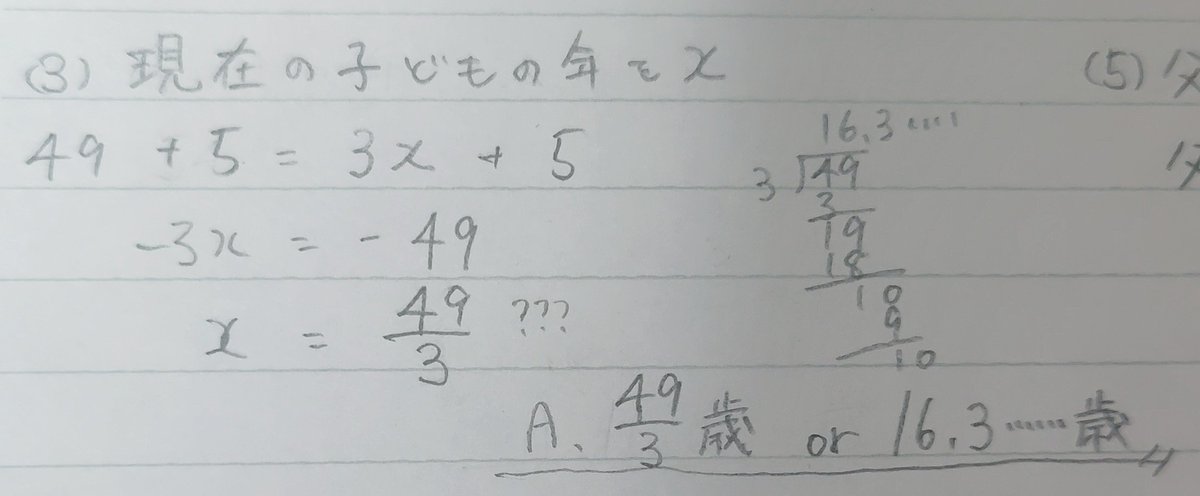 (3) 現在の子どもの年を x
49 + 5 = 3x + 5
-3x = - 49
x = 49/3 ???
A. 49/3 歳 or 16.3…… 歳
16.3 ‥‥
3 49
3
19
18
10
9
10
(5)